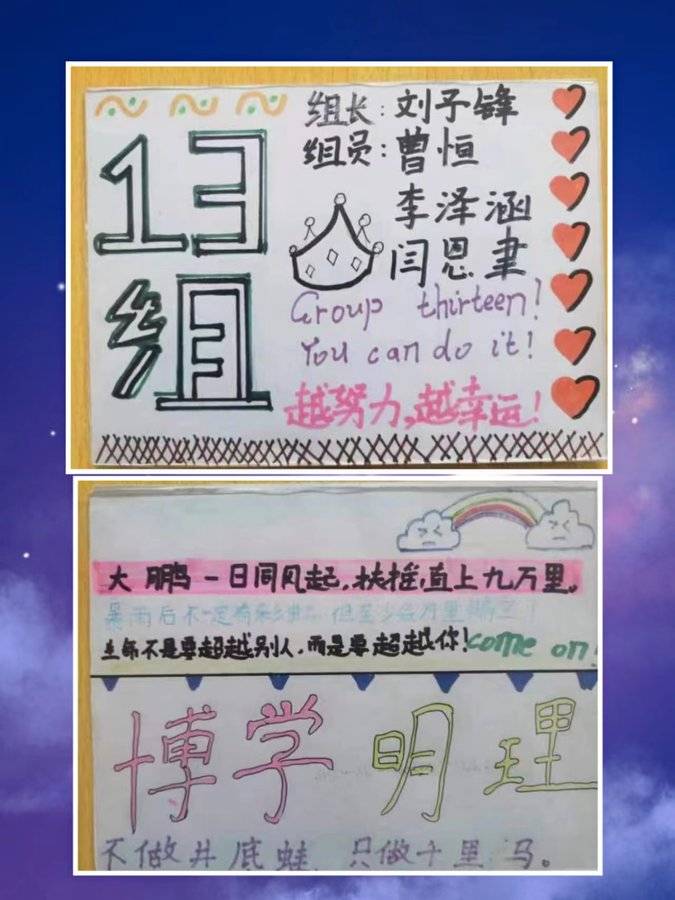 13组
组长:刘子锋
组员:曹恒
李泽涵
闫恩聿
Group thirteen!
You can do it!
越努力,越幸运!
大鹏一日同风起,扶摇直上九万里。
暴雨后不一定有彩虹,但至少会万里晴空!
生命不是要超越别人,而是要超越你!come on!
博学 明理
不做井底蛙,只做千里马。